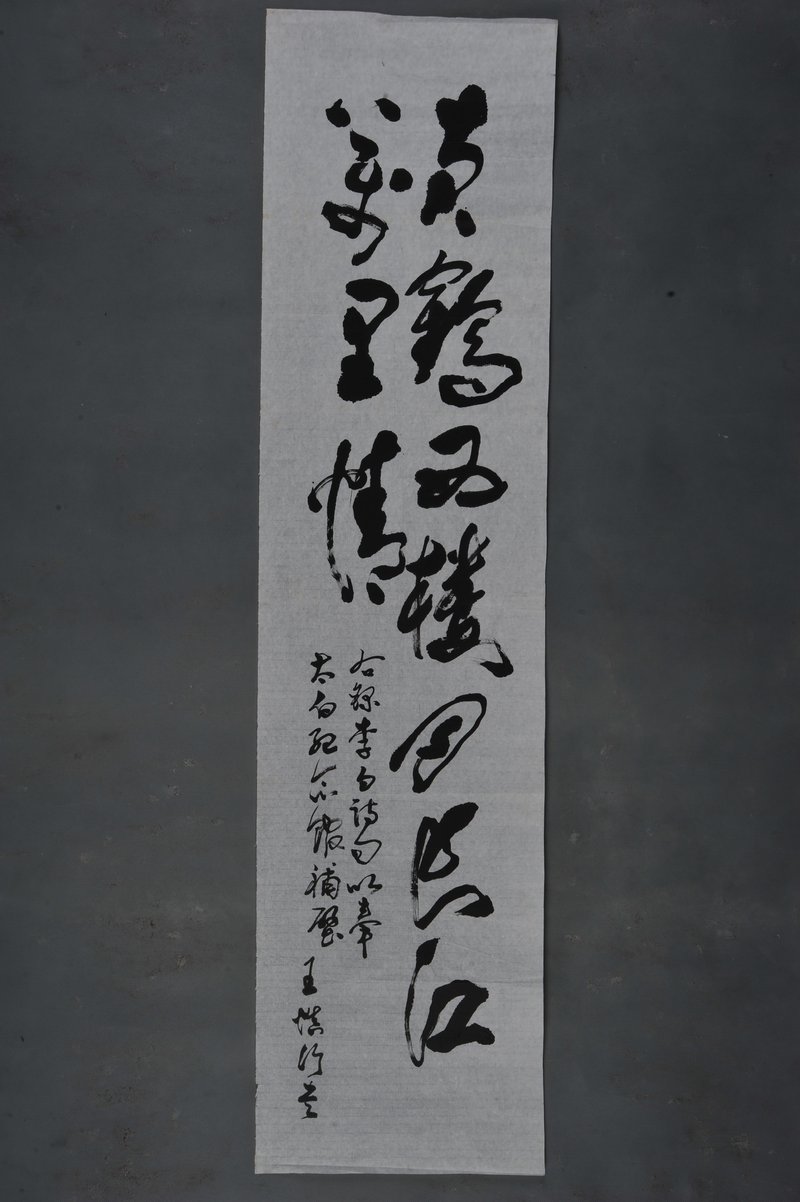 黄鶴西楼月長江
萬里情
右錄李白詩句以奉
太白紀念館補壁 王慎行書